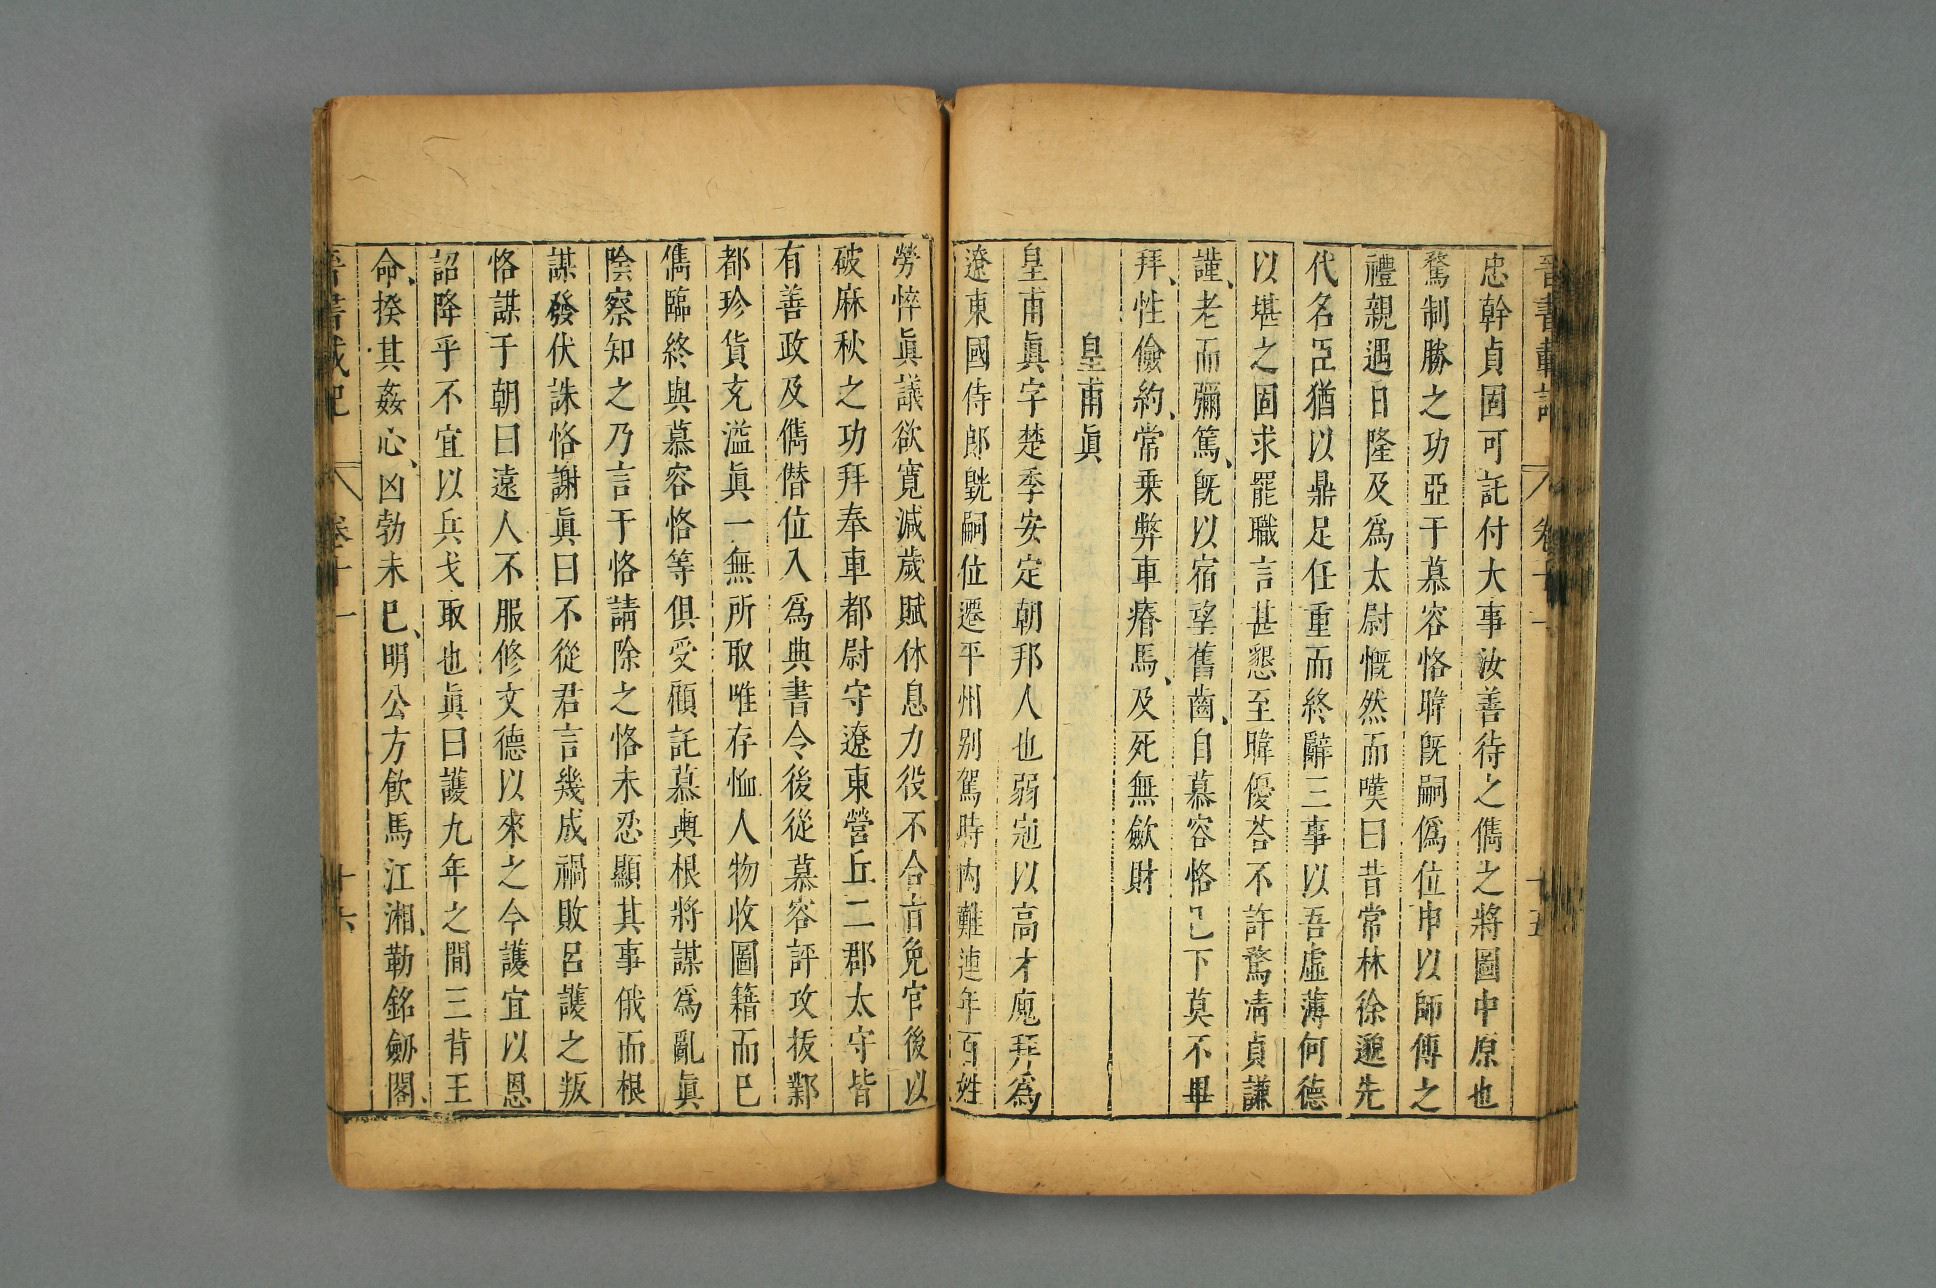 晉書載記 卷十一 十五
忠幹貞固可託付大事汝善待之儁之將圖中原也
騖制勝之功亞于慕容恪暐既嗣僞位申以師傅之
禮親遇日隆及爲太尉慨然而嘆曰昔常林徐邈先
代名臣猶以鼎足任重而終辭三事以吾虛薄何德
以堪之固求罷職言甚懇至暐優荅不許騖淸貞謙
謹、老而彌篤、既以宿望舊齒、自慕容恪已下莫不畢
拜、性儉約、常乗弊車瘠馬、及死無斂財
皇甫眞
皇甫眞字楚季安定朝邦人也弱冠以高才廆拜爲
遼東國侍郎皝嗣位遷平州别駕時内難連年百姓
勞悴眞議欲寛減歲賦休息力役不合旨免官後以
破麻秋之功拜奉車都尉守遼東營丘二郡太守皆
有善政及儁僭位入爲典書令後從慕容評攻拔鄴
都珍貨充溢眞一無所取唯存恤人物收圖籍而已
儁臨終與慕容恪等俱受顧託慕輿根將謀爲亂眞
陰察知之乃言于恪請除之恪未忍顯其事俄而根
謀發伏誅恪謝眞曰不從君言幾成禍敗呂護之叛
恪謀于朝曰遠人不服修文德以來之今護宜以恩
詔降乎不宜以兵戈取也眞曰護九年之間三背王
命、揆其姦心、凶勃未已、明公方飮馬江湘、勒銘劒閣、
晉書載記 卷十一 十六